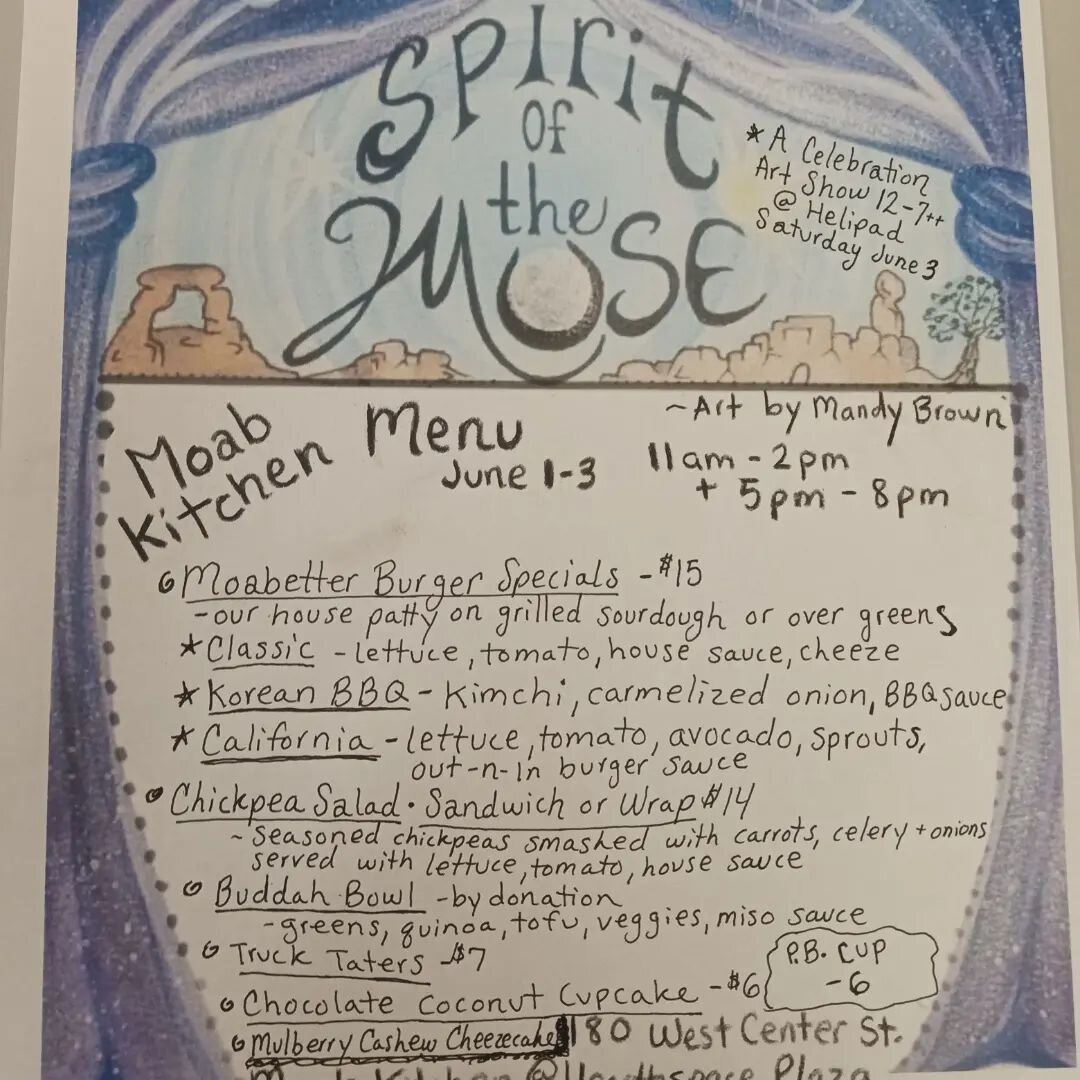 Spirit
of
the
Muse
* A Celebration
Art Show 12-7++
@ Helipad
Saturday June 3
~Art by Mandy Brown
Moab
Kitchen Menu
June 1-3
11am - 2pm
+ 5pm - 8pm
Moabetter Burger Specials - $15
- our house patty on grilled sourdough or over greens
* Classic - lettuce, tomato, house sauce, cheeze
* Korean BBQ - Kimchi, carmelized onion, BBQ sauce
* California - lettuce, tomato, avocado, sprouts,
out-n-In burger sauce
Chickpea Salad · Sandwich or Wrap $14
~ seasoned chickpeas smashed with carrots, celery + onions
served with lettuce, tomato, house sauce
Buddah Bowl - by donation
- greens, quinoa, tofu, veggies, miso sauce
Truck Taters - $7
P.B. CUP
- 6
Chocolate Coconut Cupcake - $6
Mulberry Cashew Cheezecake
180 West Center St.
Kitchen @ Plaza